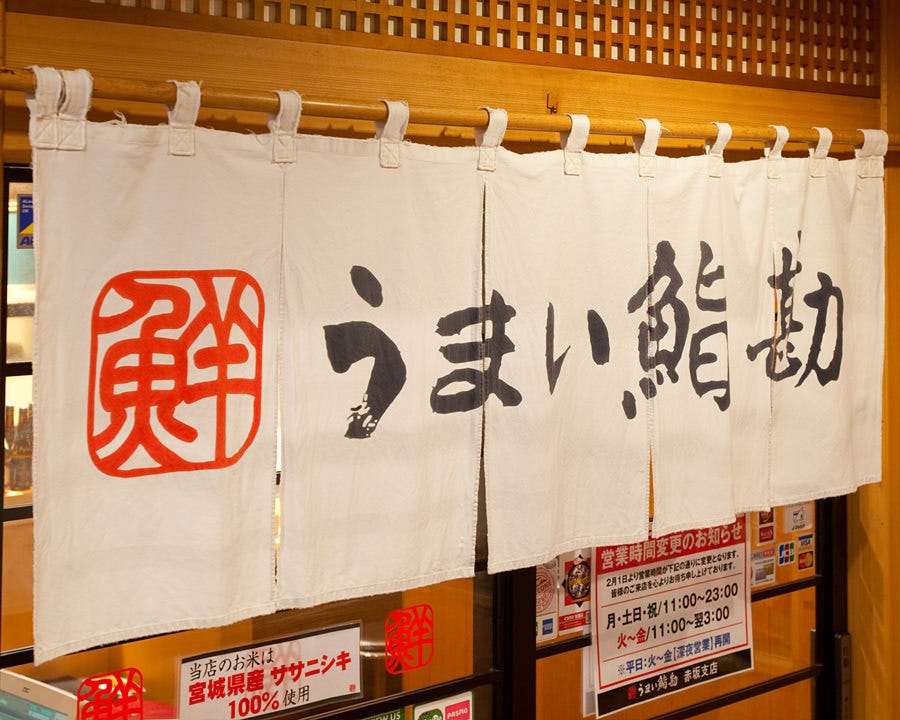 鮮
うまい鮨勘
営業時間変更のお知らせ
2月1日より営業時間が下記の通りに変更となります。
皆様のご来店を心よりお待ち申し上げております。
月・土日・祝/11:00~23:00
火~金/11:00~翌3:00
※平日:火~金[深夜営業]再開
うまい鮨勘 赤坂支店
当店のお米は
宮城県産 ササニシキ
100%使用
鮮
鮮
JCB
VISA
PASMO